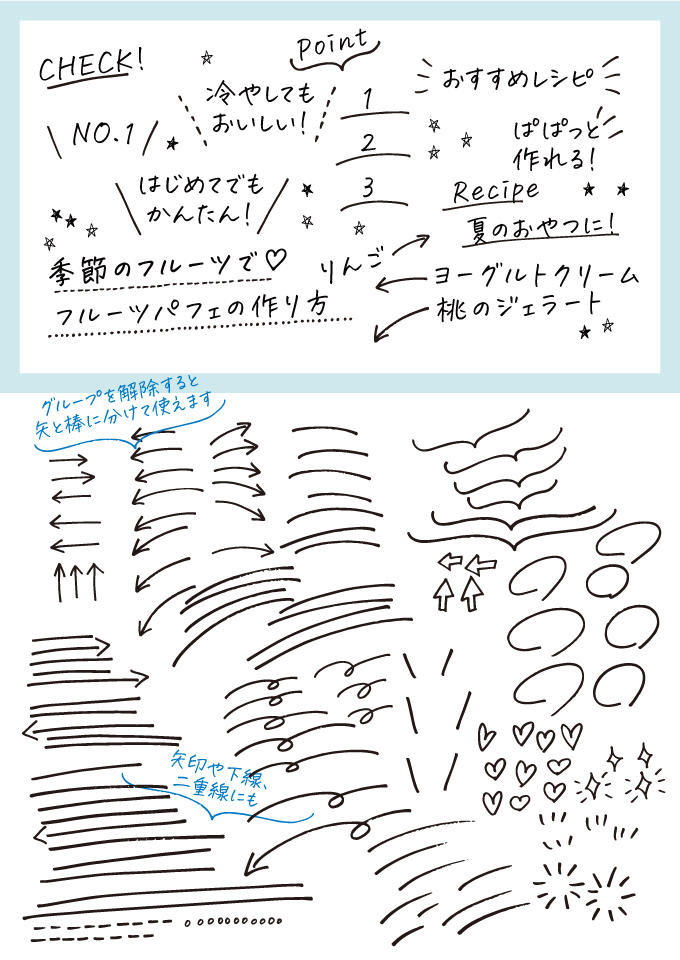 CHECK!
Point
冷やしても
おいしい!
1
2
3
おすすめレシピ
NO.1
ぱぱっと
作れる!
はじめてでも
かんたん!
Recipe
夏のおやつに!
季節のフルーツで♡
りんご
ヨーグルトクリーム
フルーツパフェの作り方
桃のジェラート
グループを解除すると
矢と棒に分けて使えます
矢印や下線、
二重線にも